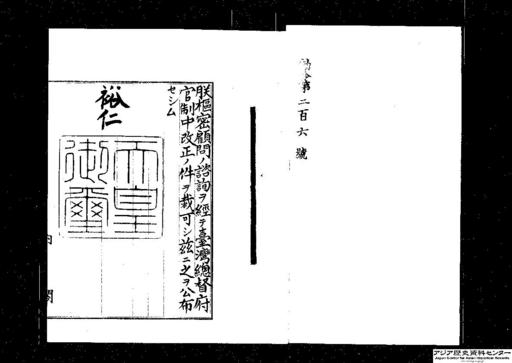 勅令第二百六號
朕樞密顧問ノ諮詢ヲ經テ臺灣總督府
官制中改正ノ件ヲ裁可シ玆ニ之ヲ公布
セシム
裕仁
天皇
御璽
内閣
アジア歴史資料センター
Japan Center for Asian Historical Records